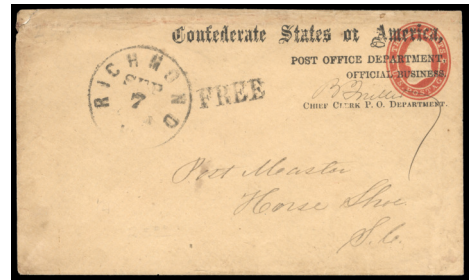 Confederate States of America,
POST OFFICE DEPARTMENT.
OFFICIAL BUSINESS.
CHIEF CLERK P. O. DEPARTMENT.
RICHMOND
SEP
7
FREE
Post Master
Horse Shoe
S.C.